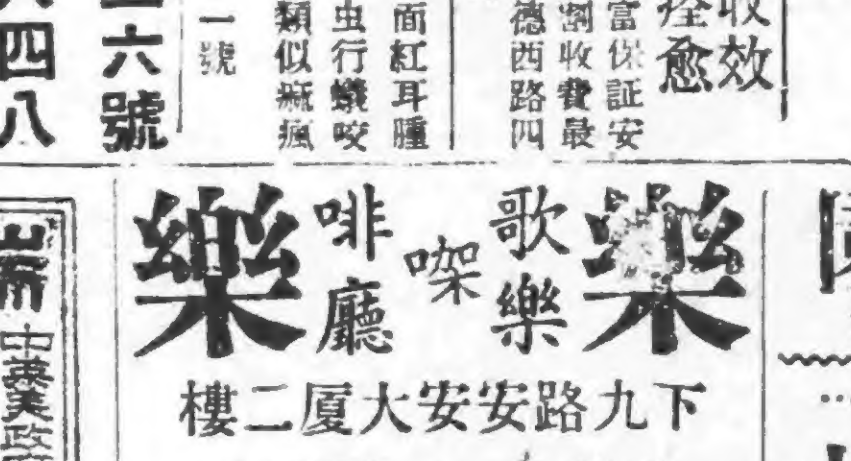 收效
痊愈
富保証安
收費最
德西路四
面紅耳腫
虫行蟻咬
類似痳瘋
一號
六號
四八
樂
歌樂
㗎
啡廳
樂
下九路安安大厦二樓
中英美政